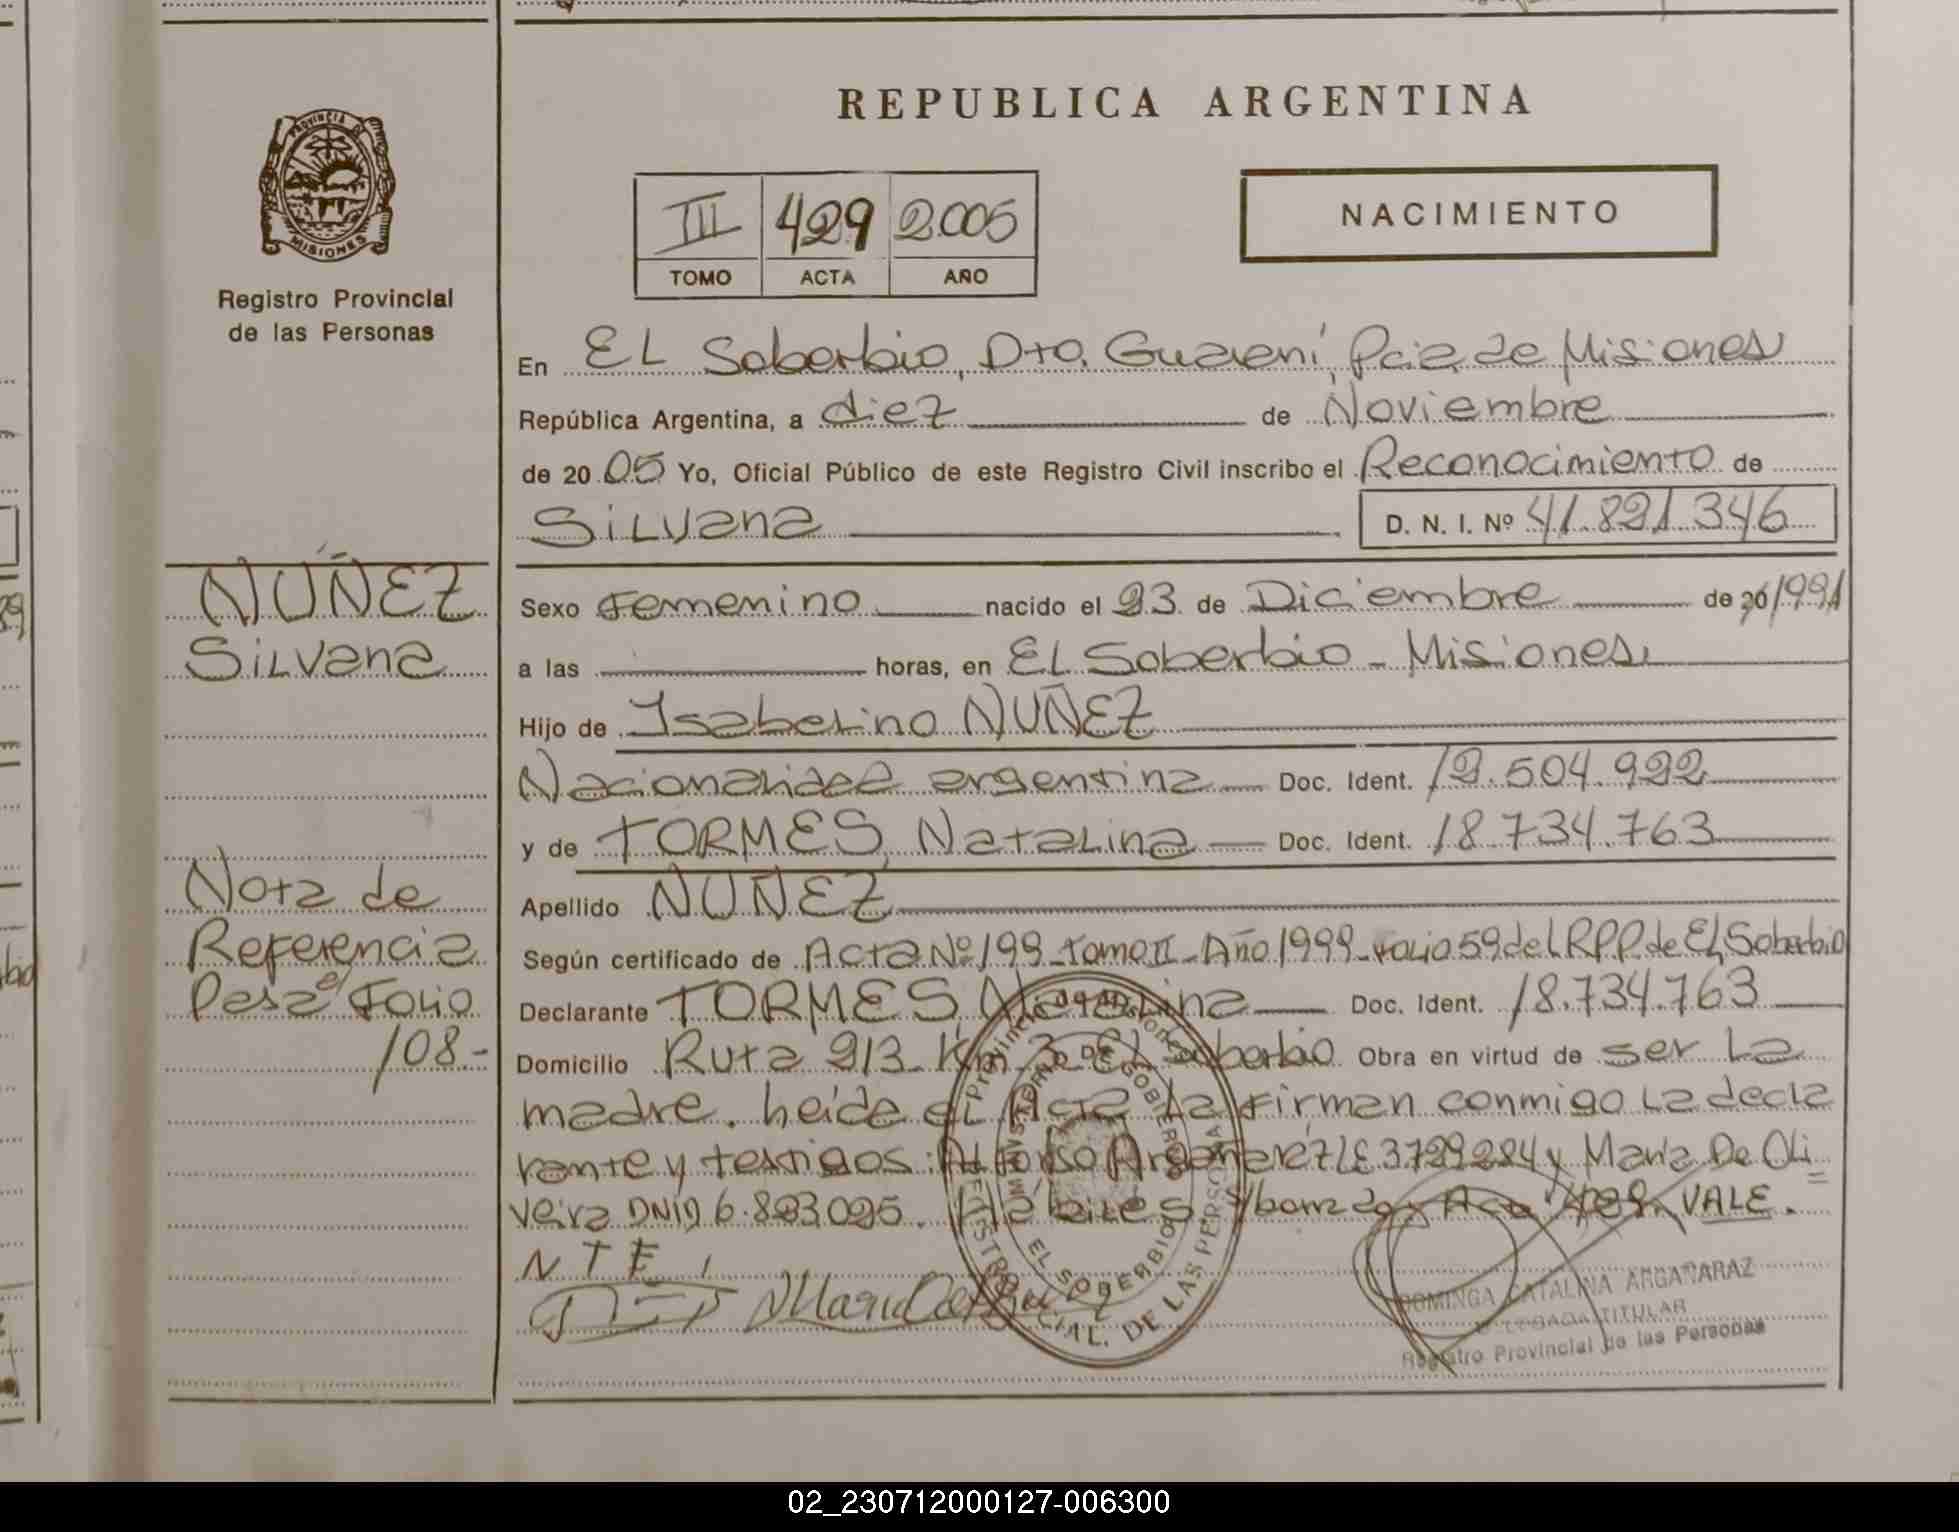 REPUBLICA ARGENTINA
PROVINCIA DE MISIONES
Registro Provincial
de las Personas
III 429 2.005
TOMO ACTA AÑO
NACIMIENTO
En EL Soberbio, Dto. Guarani, Pcia de Misiones
República Argentina, a diez de Noviembre
de 20 05 Yo, Oficial Público de este Registro Civil inscribo el Reconocimiento de
SiLvana D. N. I. Nº 41.821.346
NUÑEZ
SiLvana
Sexo Femenino nacido el 23 de Diciembre de 20 1991
a las horas, en EL Soberbio - Misiones
Hijo de Ysabelino NUÑEZ
Nacionalidad argentina Doc. Ident. 12.504.922
y de TORMES, Natalina Doc. Ident. 18.734.763
Apellido NUÑEZ
Nota de
Referencia
Pasa Folio
108-
Según certificado de Acta Nº 199 - Tomo II - Año 1999 - Folio 59 del R.P.P. de El Soberbio
Declarante TORMES, Natalina Doc. Ident. 18.734.763
Domicilio Ruta 213 Km 3 El Soberbio Obra en virtud de ser La
madre. Leida el Acta La firman conmigo La decla
rante y testigos: Alfonso LE 3729284 y Maria De Oli
veira DNI 6.823.025. Habiles. VALE.
N T F
Provincia de Misiones
MINISTERIO DE GOBIERNO
EL SOBERBIO
REGISTRO PROVINCIAL DE LAS PERSONAS
DOMINGA CATALINA ARGAÑARAZ
TITULAR
Registro Provincial de las Personas
02_230712000127-006300